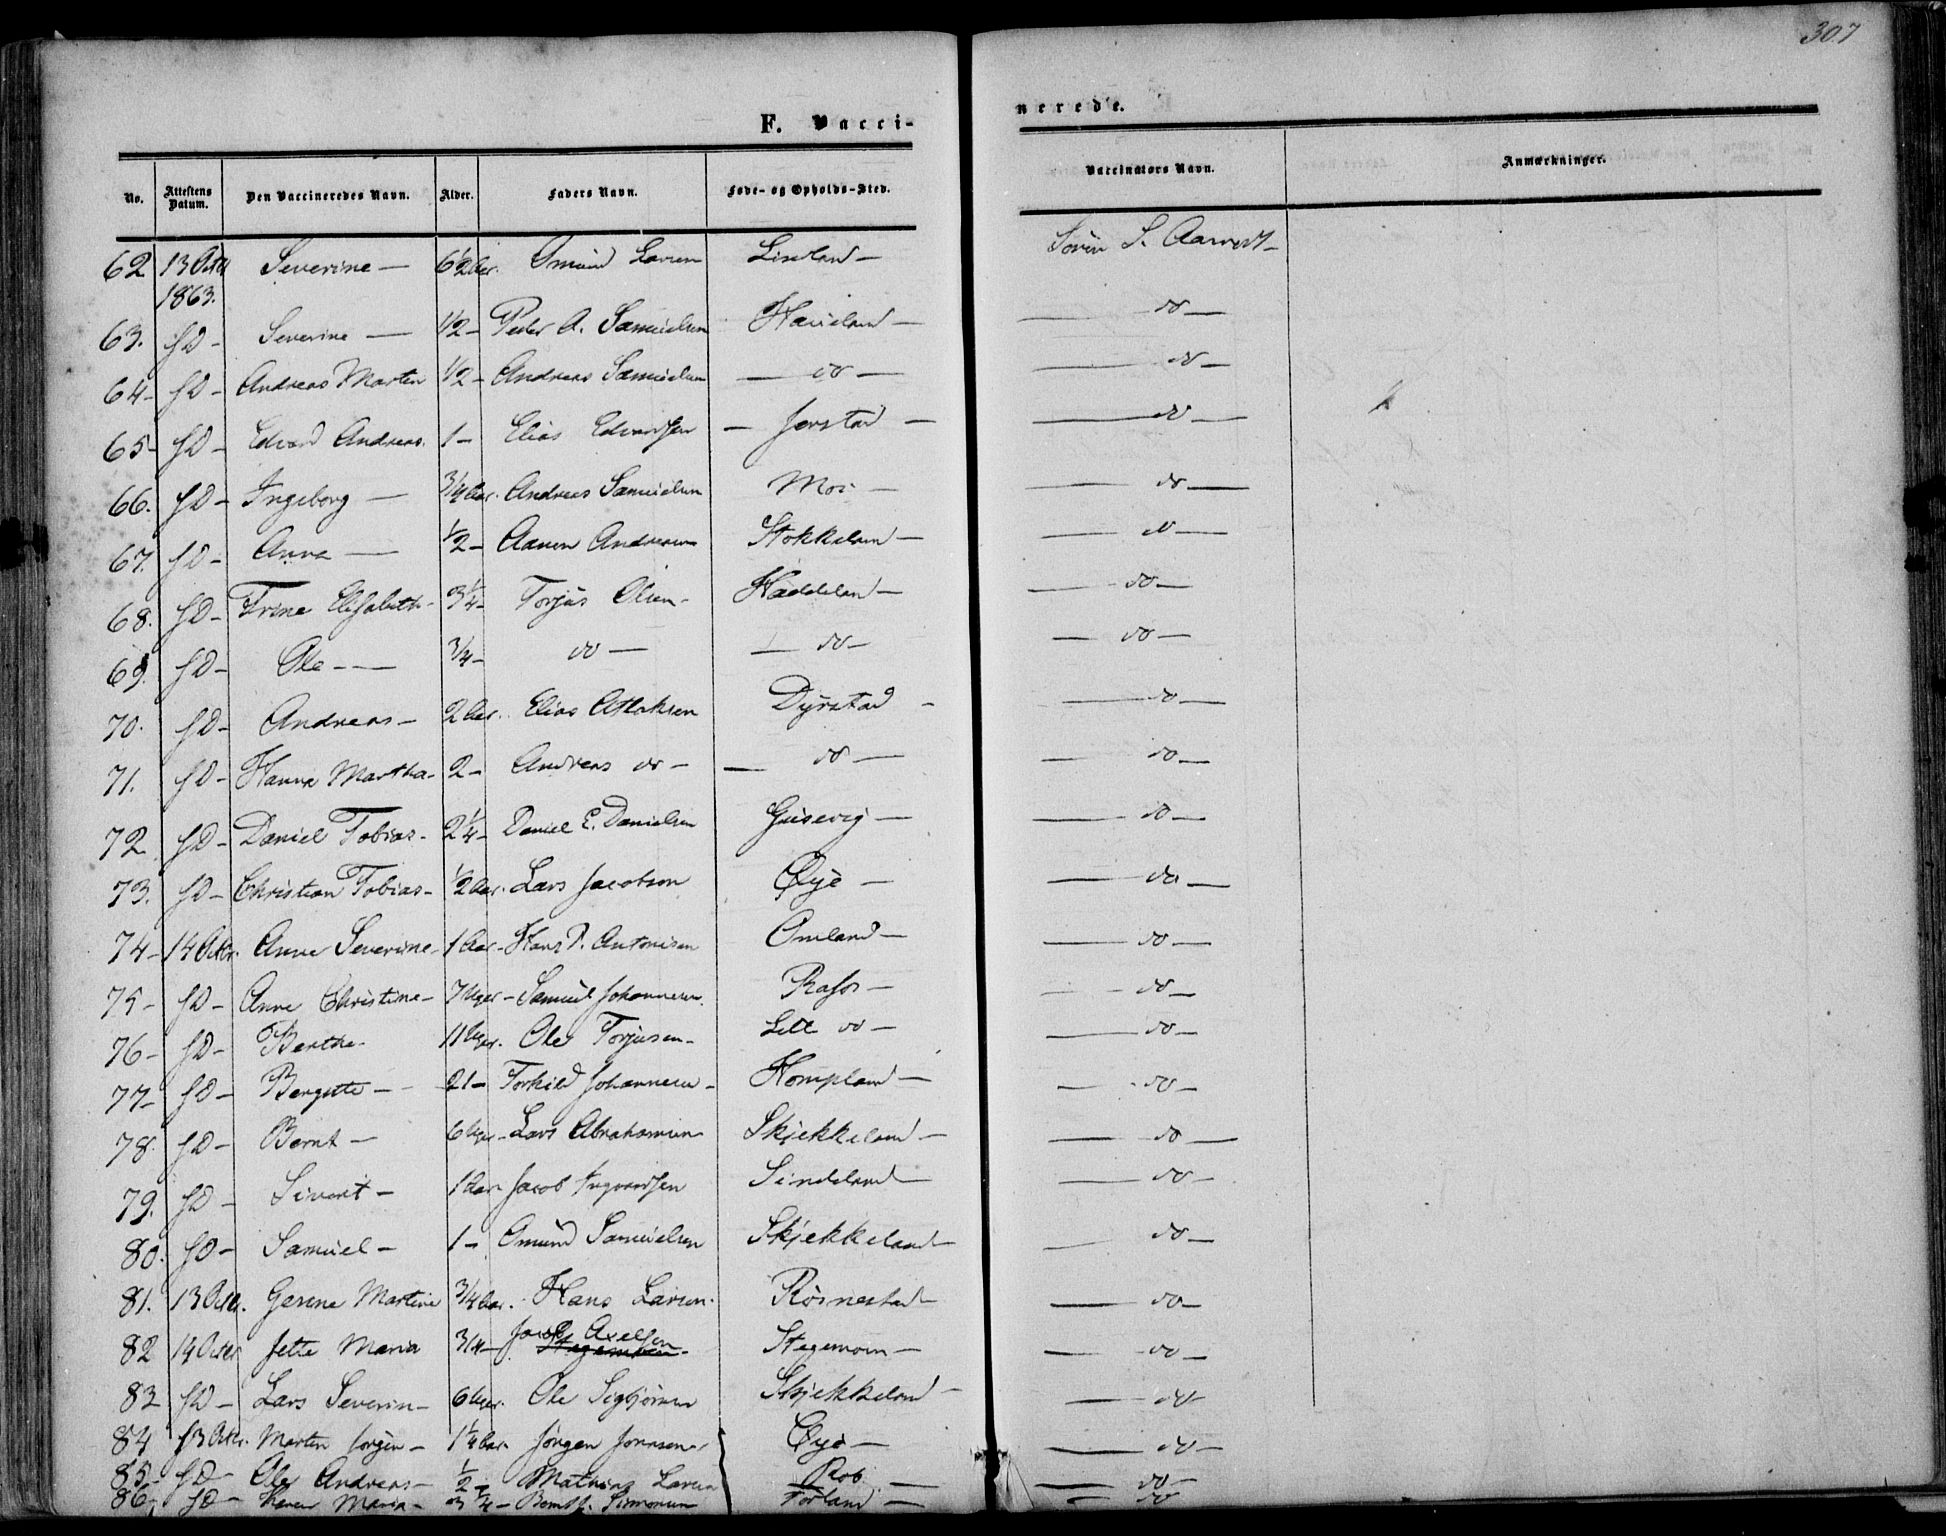 307
F. Vacci-
nerede.
No. Attestens Datum. Den Vaccineredes Navn. Alder. Faders Navn. Føde- og Opholds-Sted. Vaccinatørs Navn. Anmærkninger.
62 13 Octr 1863. Severine — 6½ Aar. Omund Larsen — Sören S. Aarvert
63. sD - Severine — 1/2 - Peder A. Samuelsen Haueland — do —
64 - sD - Andreas Martin 1/2 - Andreas Samuelsen — do — do —
65 - sD - Edvard Andreas. 1 - Elias Edvardsen — Jerstad — do —
66. sD - Ingeborg — 3/4 Aar. Andreas Samuelsen Moi — do —
67. sD - Anne — 1/2 - Aanen Andreasen Stokkeland — do —
68. sD - Trine Elisabeth - 3¼ - Torjus Olsen - Haddeland — do —
69. sD - Ole — 3/4 - do — — do — do —
70. sD - Andreas - 2 Aar. Elias Atlaksen Dyrstad - do —
71. sD - Hanne Martha - 2 - Andreas do - — do — do —
72 sD - Daniel Tobias - 2¼ - Daniel E. Danielsen Gusevig — do —
73. sD - Christian Tobias - 1/2 Aar. Lars Jacobsen Øye — do —
74 - 14 Octr. Anne Severine - 1 Aar - Hans P. Antonisen Omland — do —
75 - sD - Anne Christine - 7 Uger - Samuel Johannesen. Rafos — do —
76 - sD - Berthe - 11 Uger. Ole Torjusen - Lill do — do —
77 - sD - Bergitte - 21 - Torkild Johannesen - Kompland — do —
78. sD - Bernt — 6 Uger - Lars Abrahamsen Skjekkeland — do —
79. sD - Sivert - 1 Aar - Jacob Ingvardsen Sindeland — do -
80. sD - Samuel - 1 - Omund Samuelsen Skjekkeland - do —
81. 13 Octr. Gesine Martine 3/4 Aar. Hans Larsen. Rösnestad - do —
82 14 Octr Jette Maria 3/4 - Jacob Axelsen Stegemoen — do —
83 sD - Lars Severin - 6 Uger. Ole Sigbjörnsen Skjekkeland - do -
84 13 Octr. Martin Jörgen - 1¼ Aar. Jörgen Jonasen - Øye — do —
85 - sD - Ole Andreas - ½ - Mathias Larsen Rob. — do —
86 - sD - Maria - 3¼ - Simonsen Förland — do